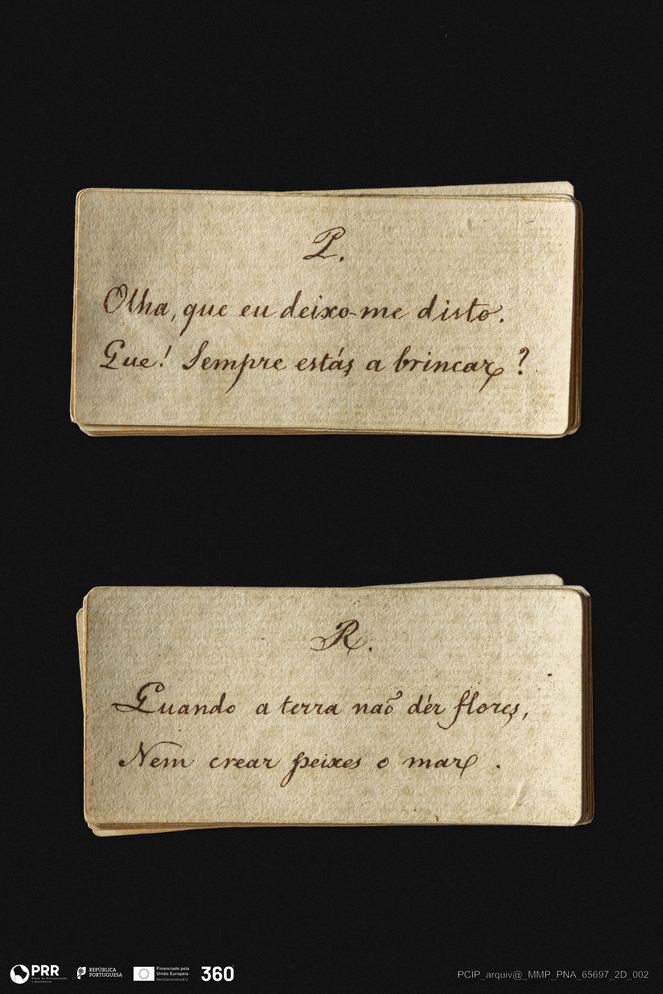 P.
Olha, que eu deixo-me disto.
Que! Sempre estás a brincar?
R.
Quando a terra naõ dér flores,
Nem crear peixes o mar.
PRR
REPÚBLICA
PORTUGUESA
Financiado pela
União Europeia
NextGenerationEU
360
PCIP_arquiv@_MMP_PNA_65697_2D_002